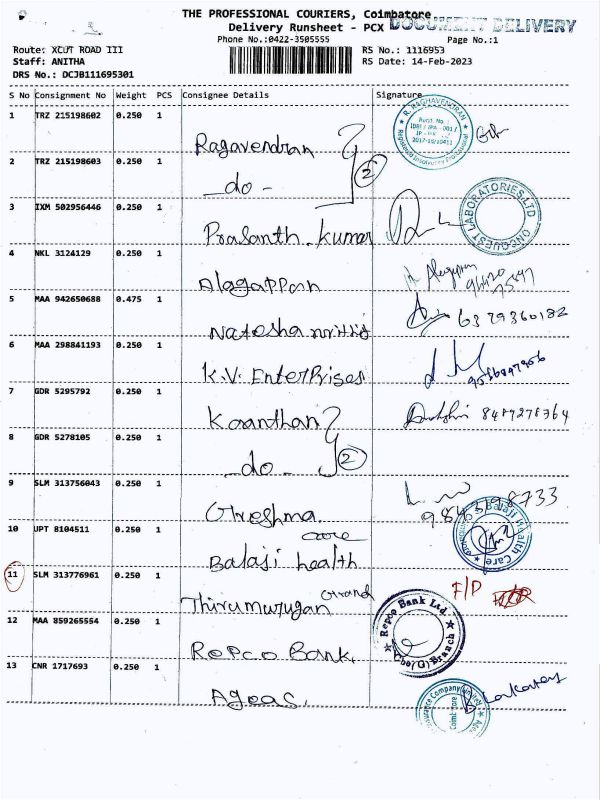 THE PROFESSIONAL COURIERS, Coimbatore
DOCUMENT DELIVERY
Delivery Runsheet - PCX
Phone No.:0422-3505555 Page No.:1
Route: XCUT ROAD III RS No.: 1116953
Staff: ANITHA RS Date: 14-Feb-2023
DRS No.: DCJB111695301
S No Consignment No Weight PCS Consignee Details Signature
1 TRZ 215198602 0.250 1 Ragavendran
R. RAGHAVENDRAN
Regd. No.:
IBBI / IPA - 001 /
2017-18/10411
Registered Insolvency Professional
2 TRZ 215198603 0.250 1 - do - 2
3 IXM 502956446 0.250 1 Prasanth. Kumar
ONCQUEST LABORATORIES LTD
4 NKL 3124129 0.250 1 Alagappan
5 MAA 942650688 0.475 1 Natesha 6379360182
6 MAA 298841193 0.250 1 K.V. Enterprises
7 GDR 5295792 0.250 1 Koanthan
8 GDR 5278105 0.250 1 - do - 2
9 SLM 313756043 0.250 1 Greshma 9843198733
10 UPT 8104511 0.250 1 Balaji health care
Balaji Health Care
11 SLM 313776961 0.250 1 Thirumurugan Grand F/P
12 MAA 859265554 0.250 1 Repco Bank.
Repco Bank Ltd.
Branch
13 CNR 1717693 0.250 1 Ageas.
Insurance Company Limited
Coimbatore